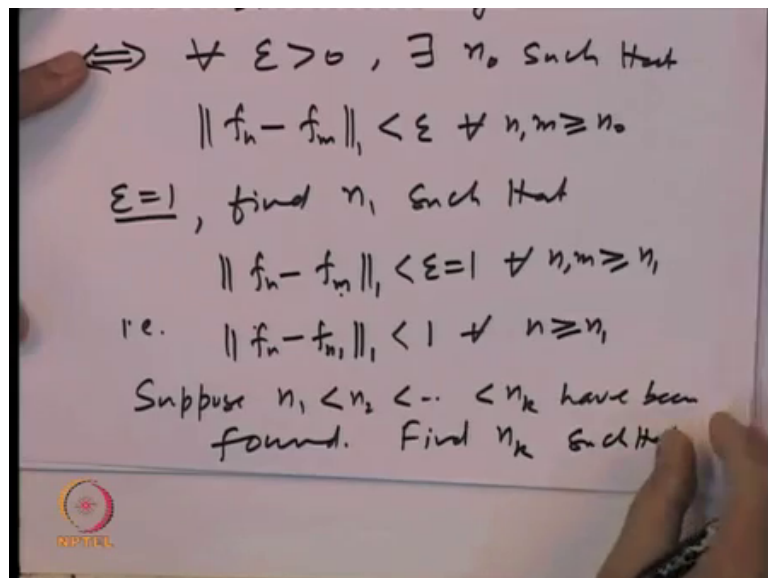 ⟺ ∀ ε>0, ∃ n₀ such that
‖ fₙ − fₘ ‖₁ < ε ∀ n,m ≥ n₀
ε=1, find n₁ such that
‖ fₙ − fₘ ‖₁ < ε=1 ∀ n,m ≥ n₁
i.e. ‖ fₙ − fₙ₁ ‖₁ < 1 ∀ n ≥ n₁
Suppose n₁ < n₂ < .. < nₖ have been
found. Find nₖ such
NPTEL